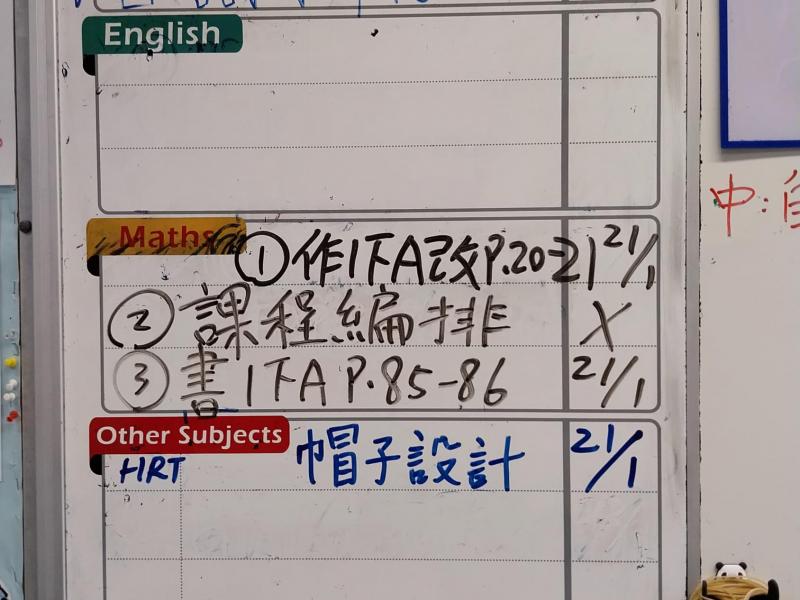 English
Maths
①作1下A改P.20-21 21/1
②課程編排 X
③書1下A P.85-86 21/1
Other Subjects
HRT 帽子設計 21/1
中: